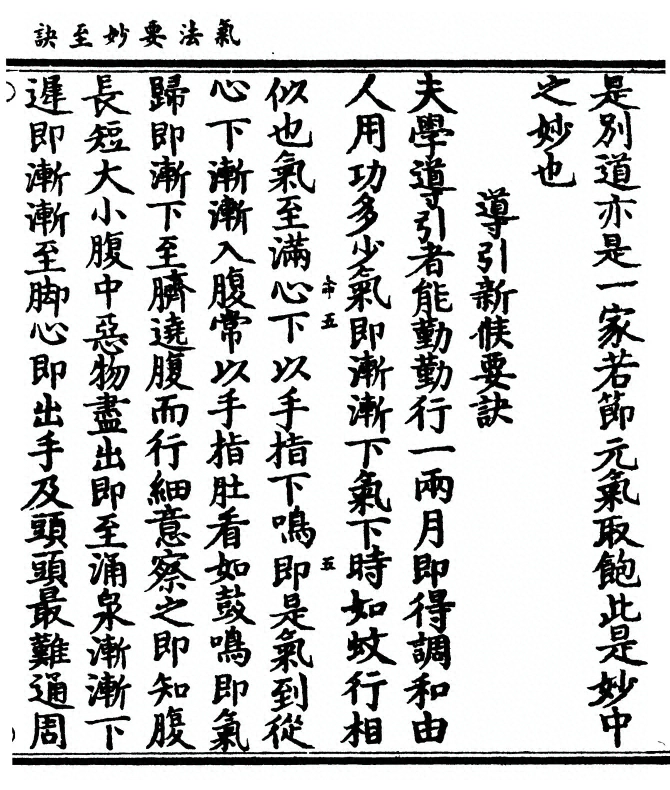 氣法要妙至訣
是別道亦是一家若節元氣取飽此是妙中
之妙也
導引新候要訣
夫學導引者能勤勤行一兩月即得調和由
人用功多少氣即漸漸下氣下時如蚊行相
似也氣至滿心下以手指下鳴即是氣到從
心下漸漸入腹常以手指肚看如鼓鳴即氣
歸即漸下至臍遶腹而行細意察之即知腹
長短大小腹中惡物盡出即至涌泉漸漸下
遲即漸漸至脚心即出手及頭頭最難通周